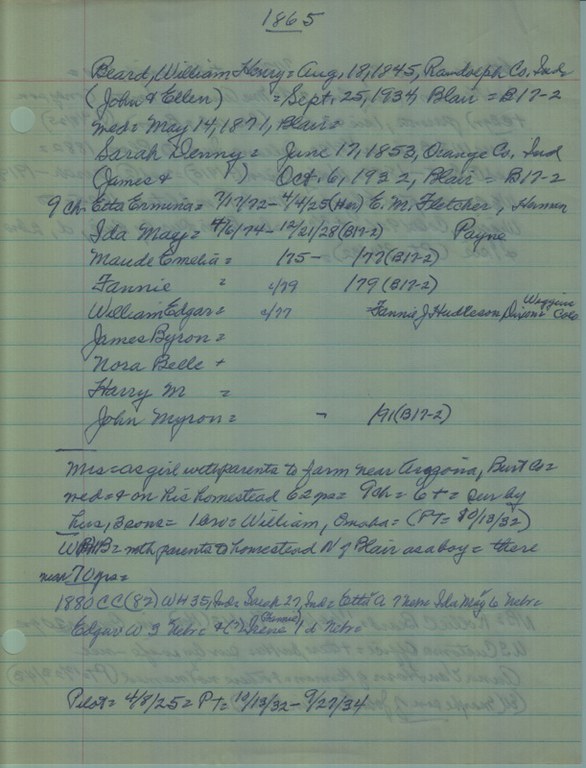 1865
Beard, William Henry = Aug. 18, 1845, Randolph Co. Ind
(John & Ellen) = Sept. 25, 1934, Blair = B17-2
med = May 14, 1871, Blair =
Sarah Denny = June 17, 1853, Orange Co, Ind
(James & ) Oct. 6, 1932, Blair = B17-2
9 ch. Etta Ermina = 7/17/72 - 4/4/25 (Her) E. M. Fletcher, Herman
Ida May = 4/6/74 - 12/21/28 (B17-2) Payne
Maude Emelia = /75 - /77 (B17-2)
Fannie = c/79 /79 (B17-2)
William Edgar = c/77 Fannie J Hudleson Wiggins Colo
James Byron =
Nora Belle +
Harry M =
John Myron = - /91 (B17-2)
Mrs = as girl with parents to farm near Arizona, Burt Co =
med = & on his homestead 62 yrs = 9 ch = 6 + = sur by
hus, 3 sons = 1 bro = William, Omaha = (PT = 10/13/32)
WHB = with parents to homestead N of Blair as a boy = there
near 70 yrs =
1880 CC (82) WH 35, Ind = Sarah 27, Ind = Etta A 7 Ida May 6 Nebr =
Edgar W 3 Nebr = (Fannie) 1 d Nebr =
Pilot = 4/8/25 = PT = 10/13/32 - 9/27/34